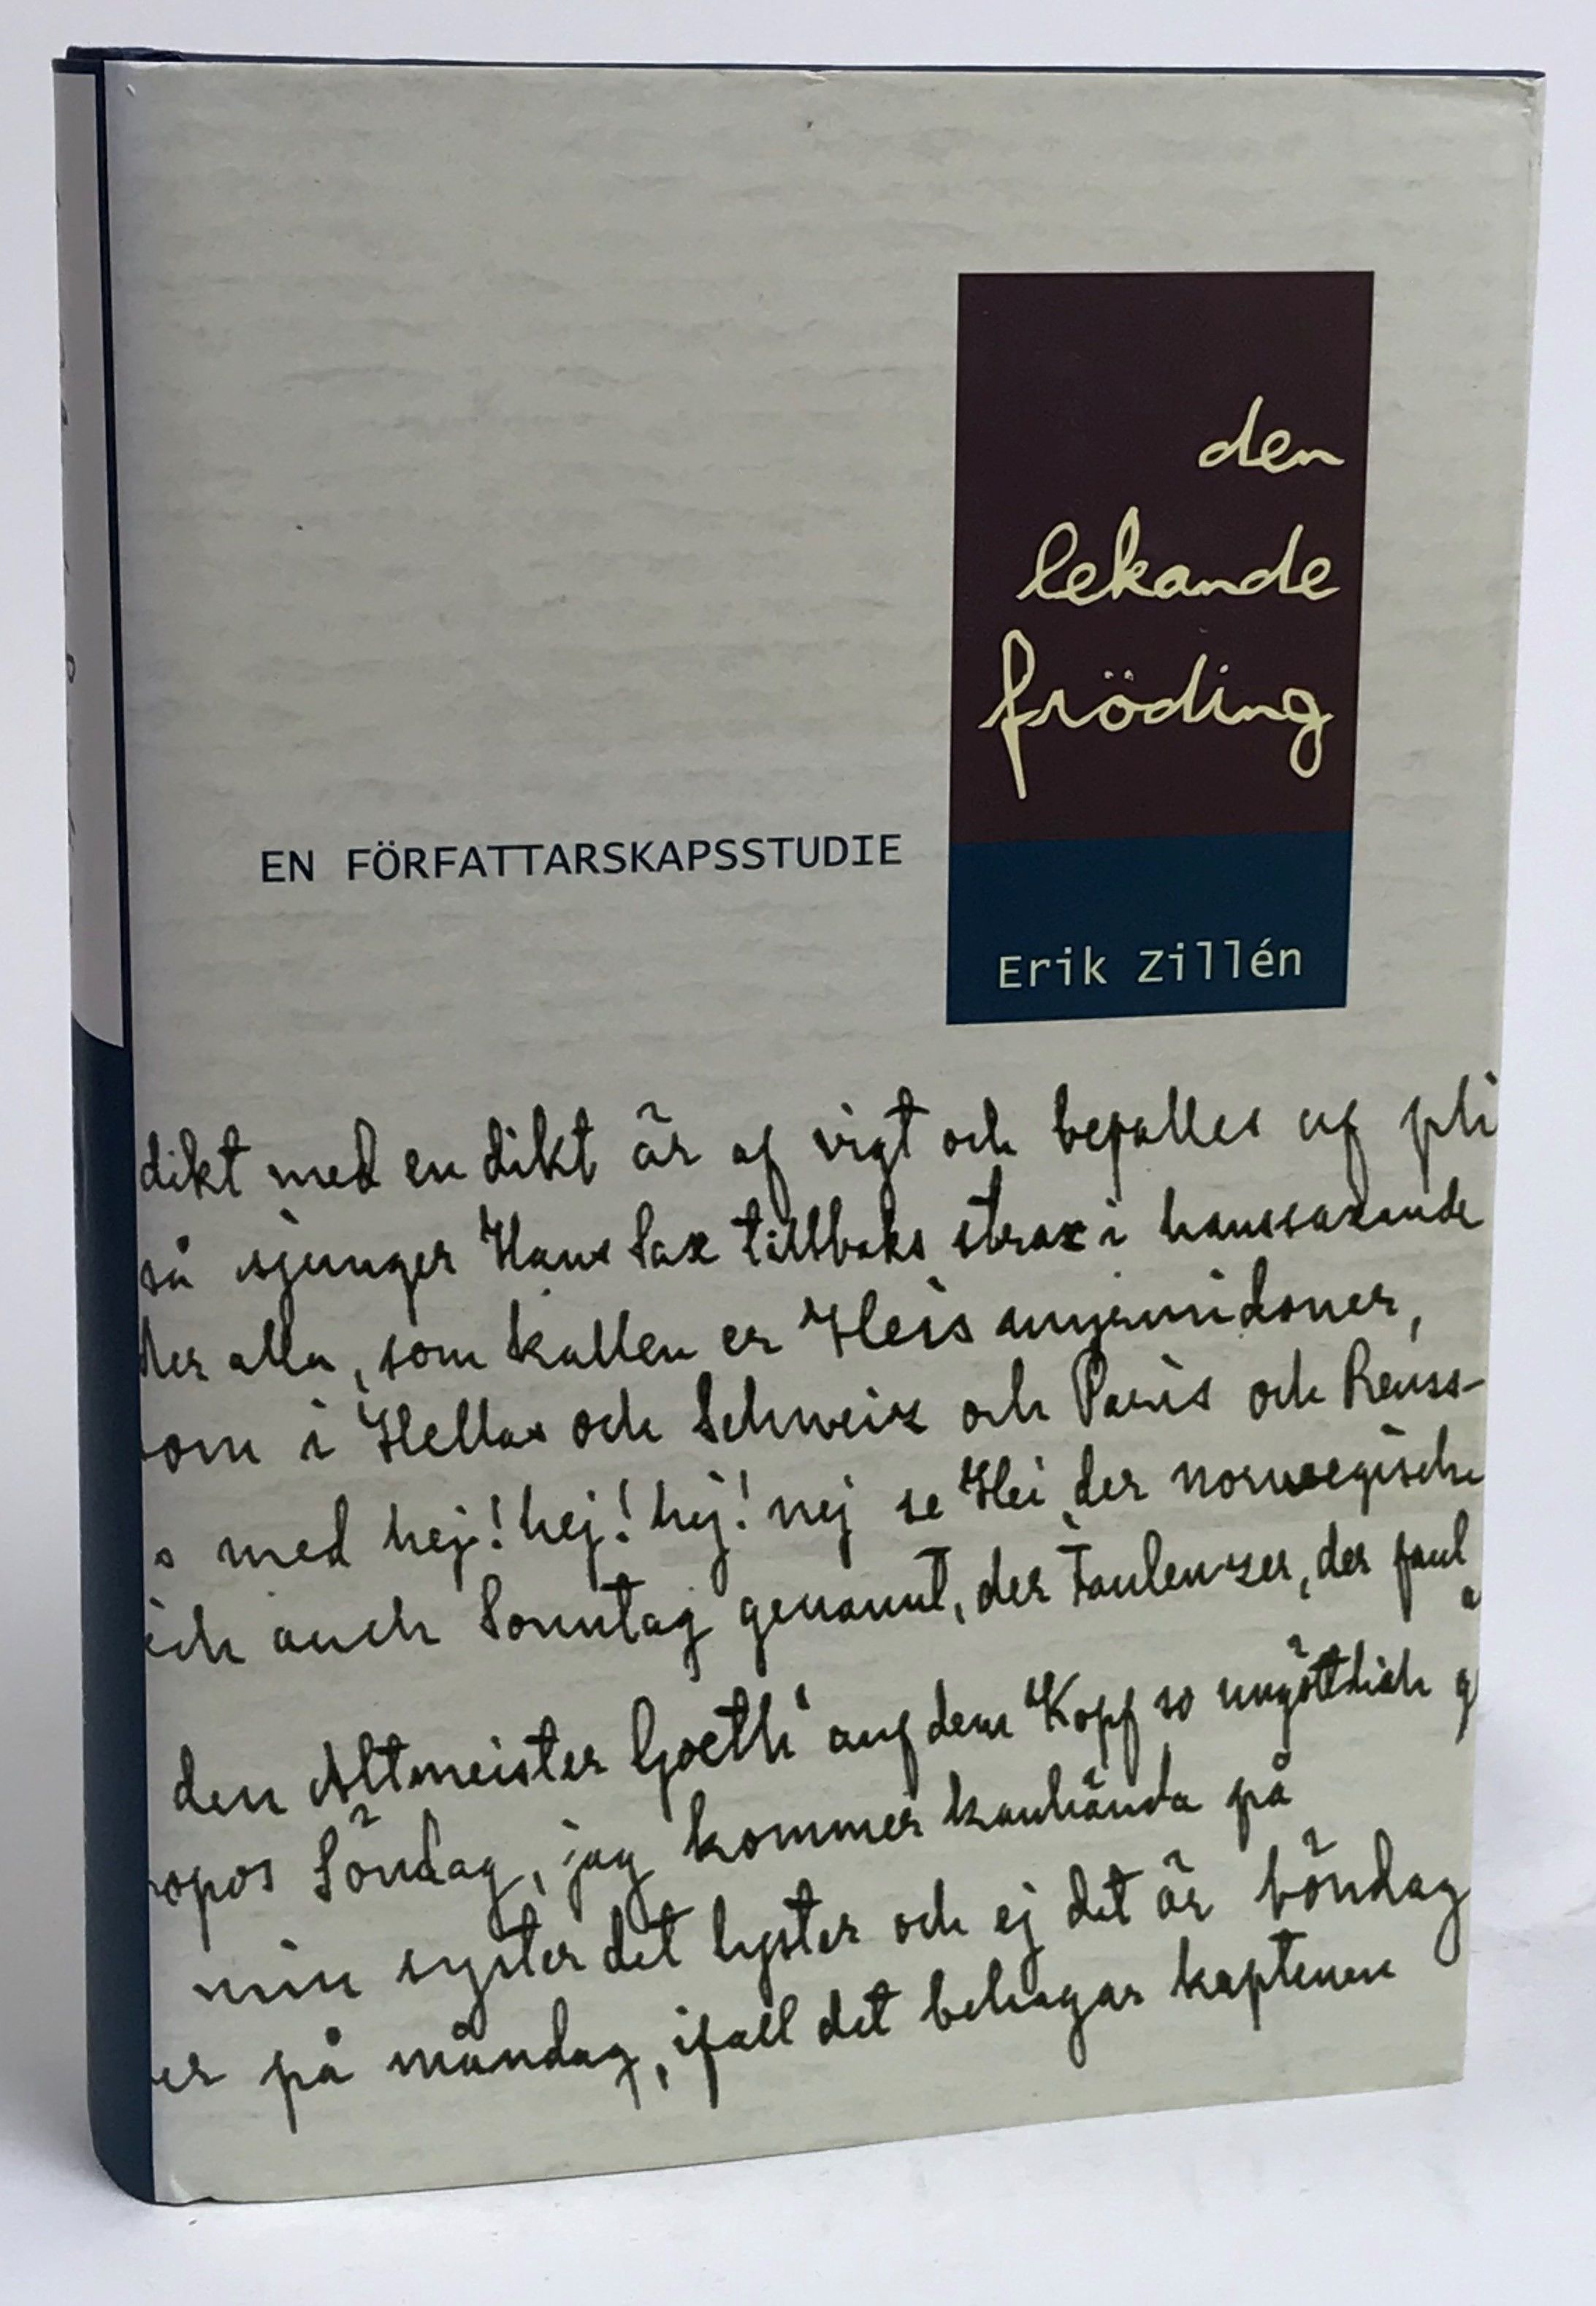 den
lekande
fröding
EN FÖRFATTARSKAPSSTUDIE
Erik Zillén
dikt med en dikt är af vigt och befalles af pli
så sjunger Hans Sax tillbaks strax i hanssaxande
der alla, som kallen er Heis
om i Hellas och Schweiz och Paris och Reuss-
s med hej! hej! hej! nej se Hei, der norwegische
ich auch Sonntag genannt, der Faulenzer, der faul
den Altmeister Goeth' auf dem Kopf so ungöttlich g
opos Söndag, jag kommer kanhända på
min syster det lyster och ej det är böndag
er på måndag, ifall det behagar kaptenen